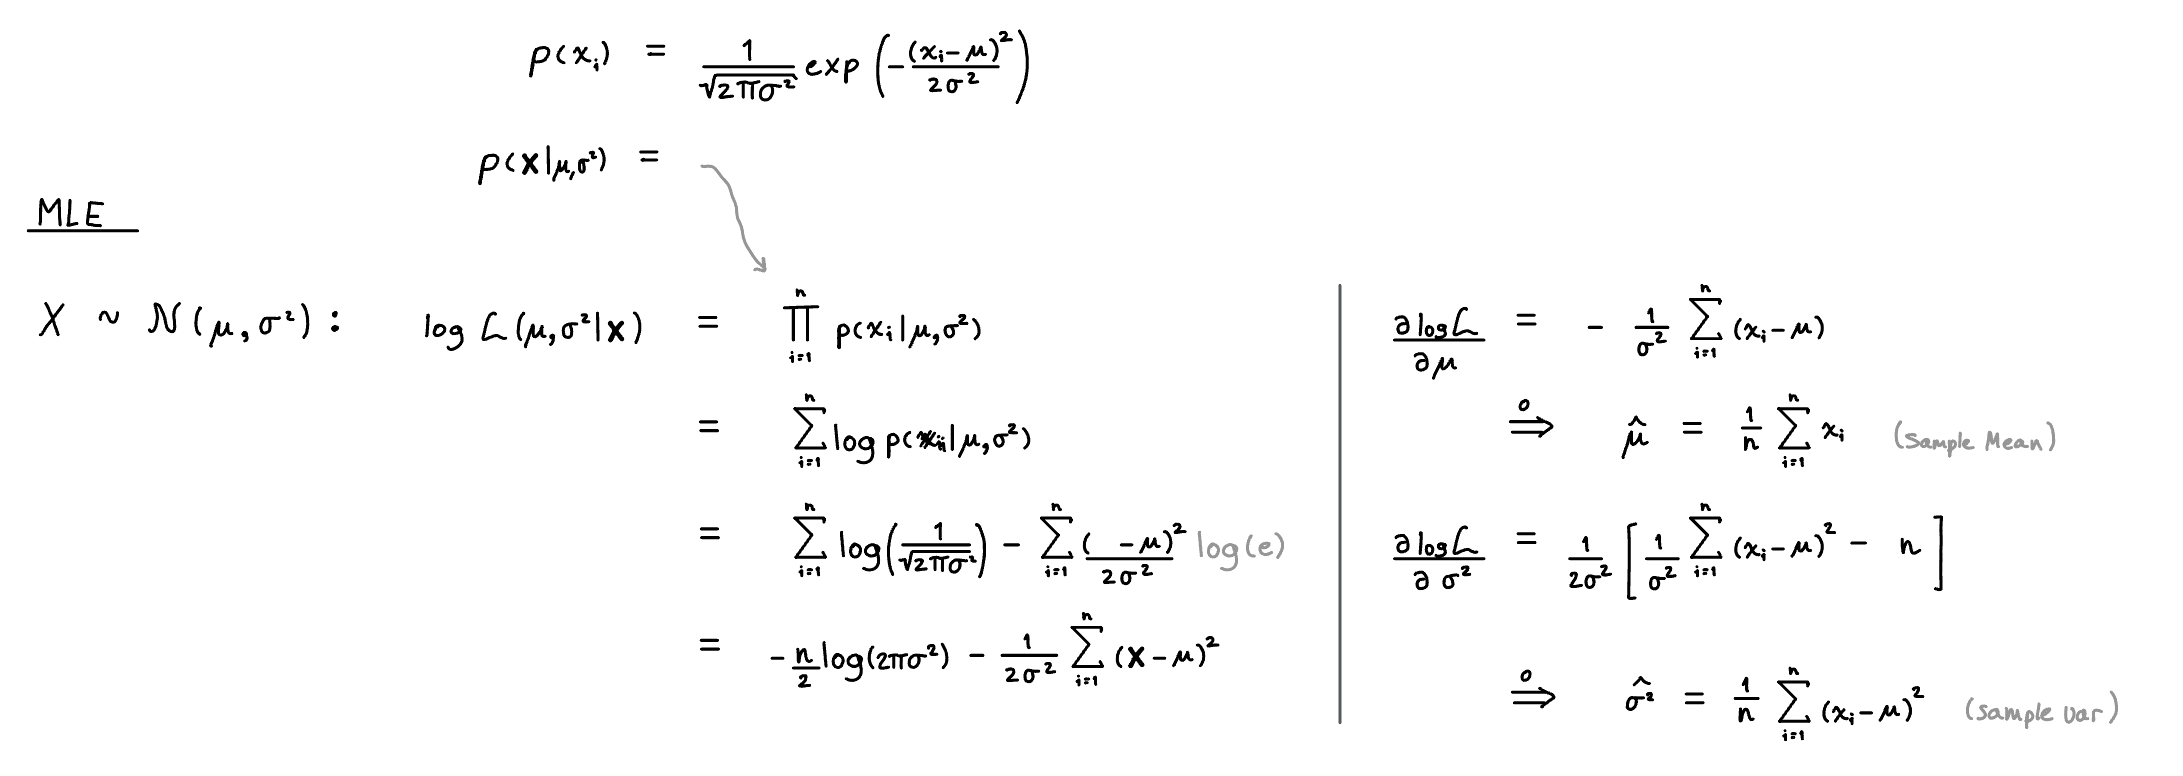 p(xᵢ) = 1/√(2πσ²) exp(−(xᵢ−μ)²/2σ²)
p(𝐱|μ,σ²) =
MLE
X ~ N(μ,σ²): log L(μ,σ²|𝐱) = ∏ⁿᵢ₌₁ p(xᵢ|μ,σ²)
= ∑ⁿᵢ₌₁ log p(xᵢ|μ,σ²)
= ∑ⁿᵢ₌₁ log(1/√(2πσ²)) − ∑ⁿᵢ₌₁ ( −μ)²/2σ² log(e)
= −n/2 log(2πσ²) − 1/2σ² ∑ⁿᵢ₌₁ (𝐱−μ)²
∂ log L/∂μ = − 1/σ² ∑ⁿᵢ₌₁ (xᵢ−μ)
0 ⇒ μ̂ = 1/n ∑ⁿᵢ₌₁ xᵢ (Sample Mean)
∂ log L/∂σ² = 1/2σ² [1/σ² ∑ⁿᵢ₌₁ (xᵢ−μ)² − n]
0 ⇒ σ̂² = 1/n ∑ⁿᵢ₌₁ (xᵢ−μ)² (Sample var)